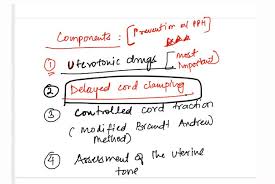 Components : [Prevention of PPH
① Uterotonic drugs [most important]
② Delayed cord clamping
③ Controlled cord traction
(modified Brandt Andrew
method)
④ Assessment of the uterine
tone